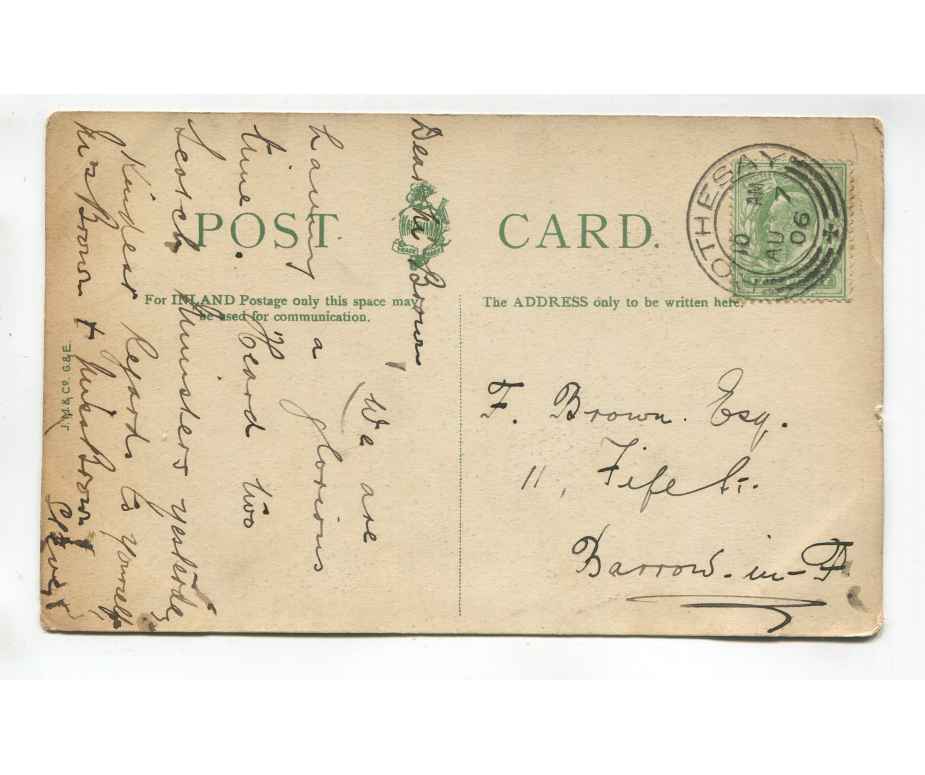 POST CARD.
For INLAND Postage only this space may
be used for communication.
The ADDRESS only to be written here.
J. M. & Co. G. & E.
OTHESAY
10 AM
AU 7
06
Dear Mr Brown
We are
having a glorious
time. Heard two
Scotch Ministers yesterday
Kindest Regards to yourself
Mrs Brown & Miss Brown
F. Brown. Esq.
11, Fife St.
Barrow-in-F